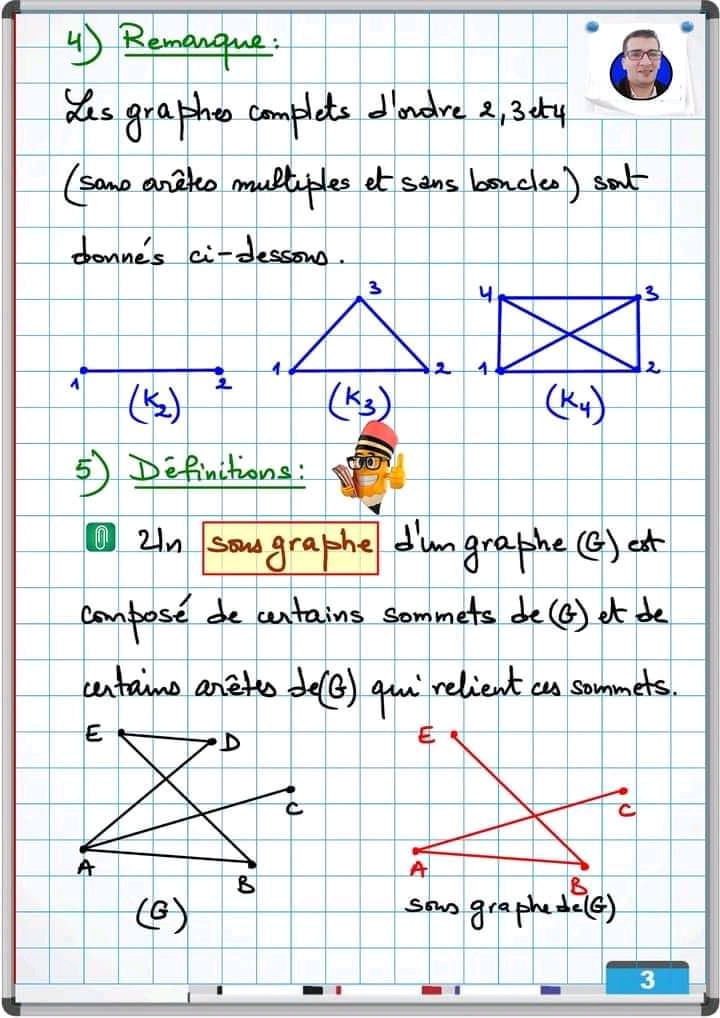 4) Remarque:
Les graphes complets d'ordre 2, 3 et 4
(sans arêtes multiples et sans boucles) sont
donnés ci-dessous.
3
4 3
1 2
1 2
1 2
(K₂)
(K₃)
(K₄)
5) Définitions:
Un sous graphe d'un graphe (G) est
composé de certains sommets de (G) et de
certains arêtes de (G) qui relient ces sommets.
E D
C
A
B
(G)
E
C
A
B
sous graphe de (G)
3